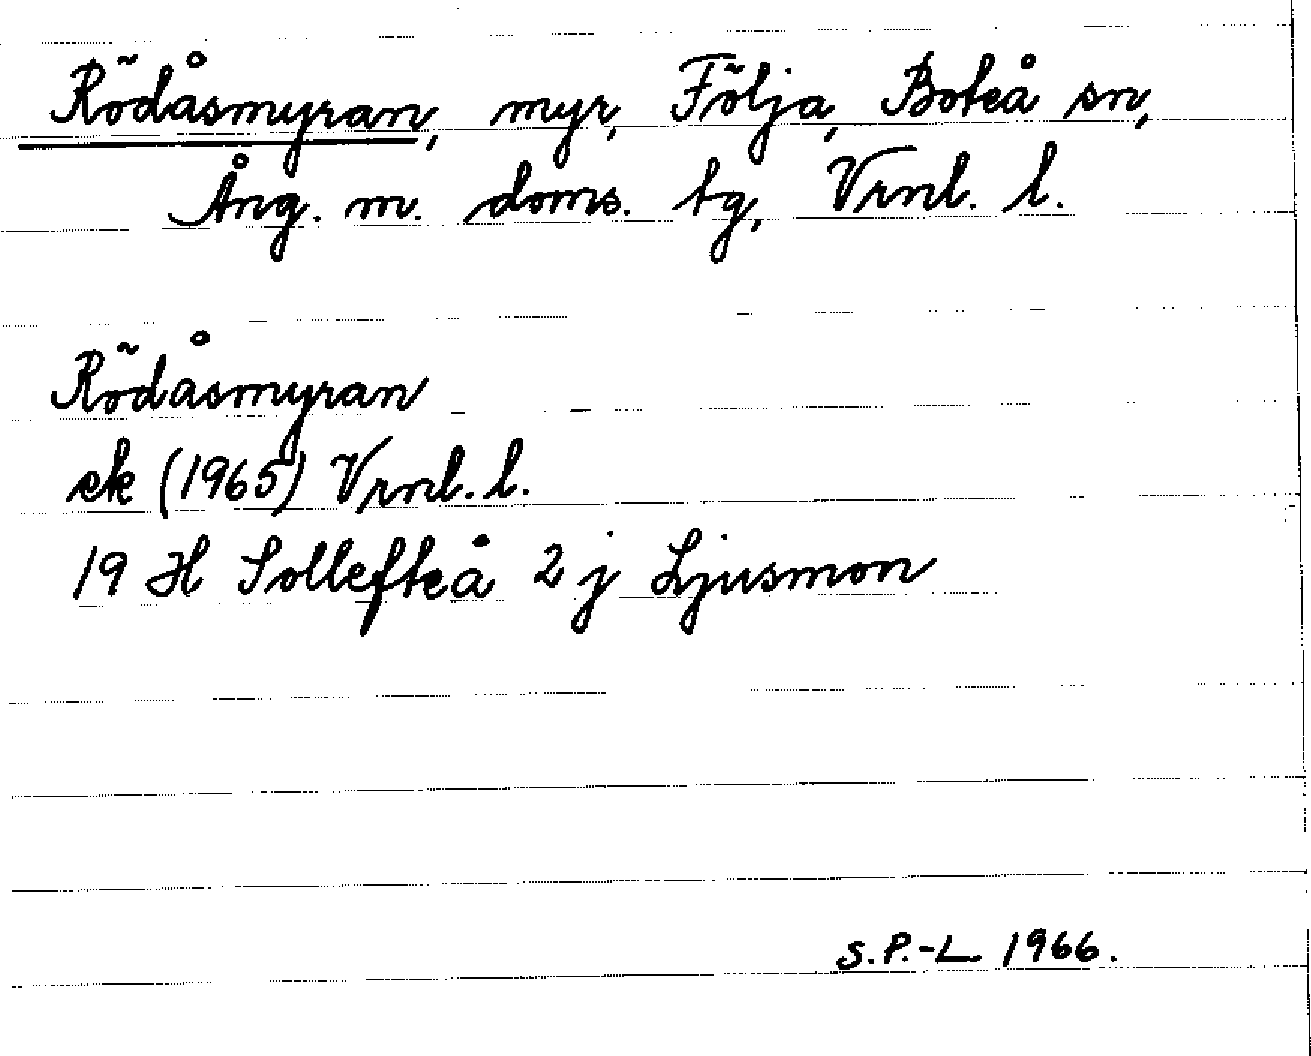 Rödåsmyran, myr, Följa, Boteå sn,
Ång. m. doms. tg, Vrnl. l.
Rödåsmyran
ek (1965) Vrnl. l.
19 H Sollefteå 2 j Ljusmon
S.P.-L 1966.